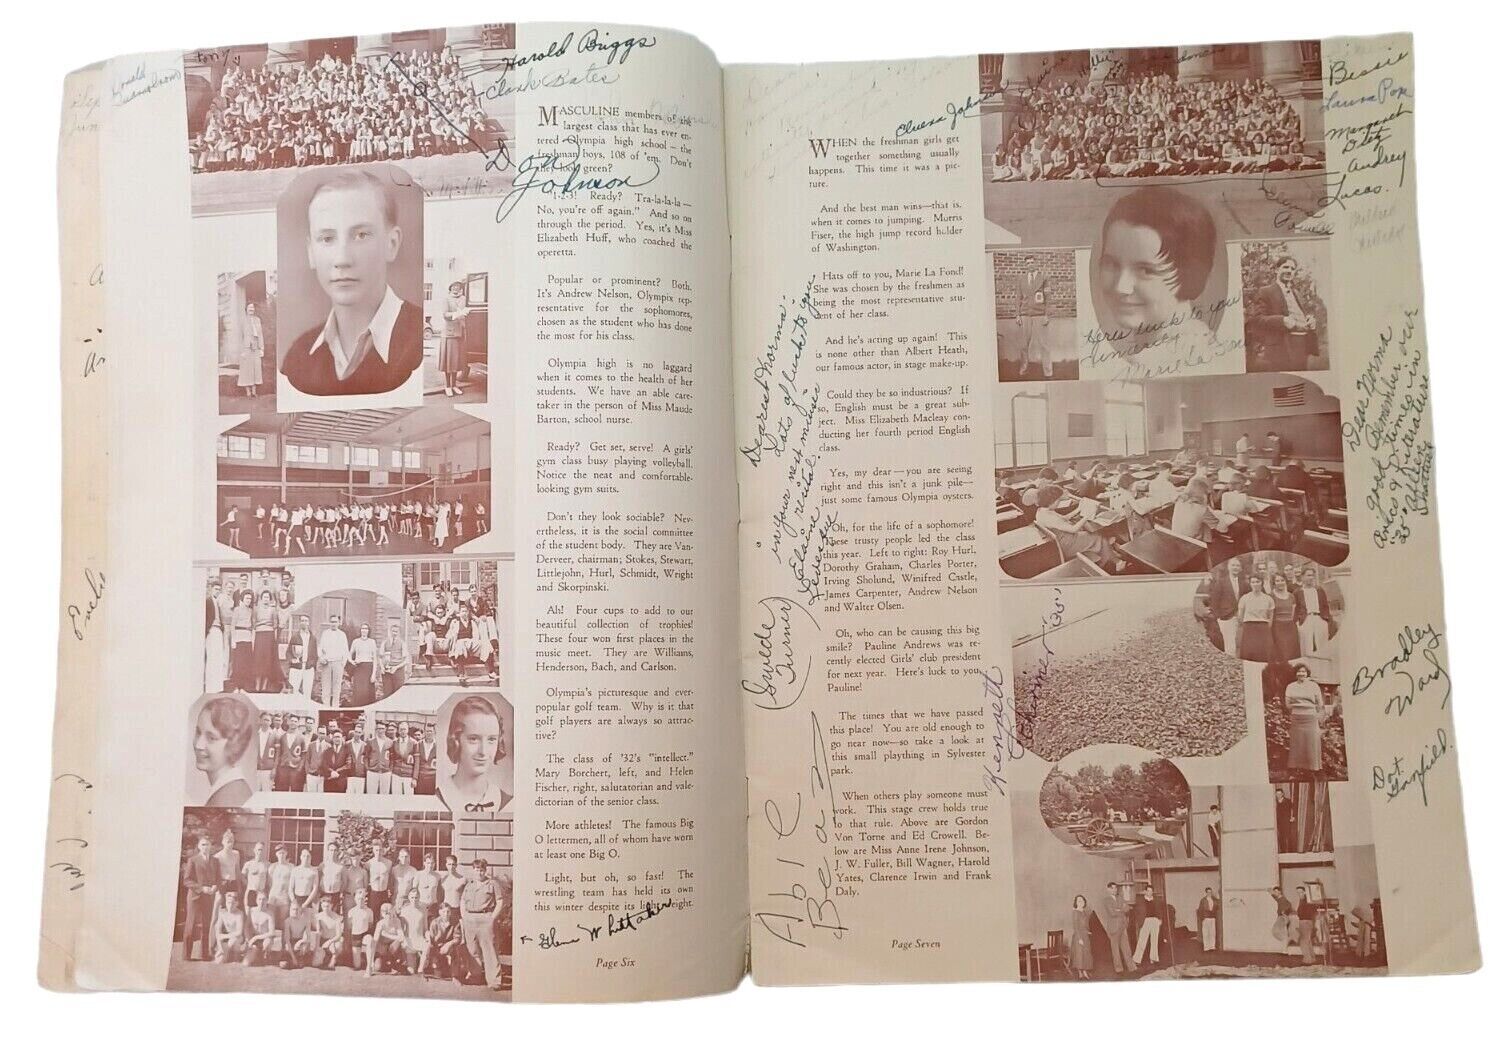 Harold Briggs
Clark Bates
Don
Johnson
MASCULINE members of the
largest class that has ever en-
tered Olympia high school — the
freshman boys, 108 of 'em. Don't
they look green?
"1-2-3! Ready? Tra-la-la-la —
No, you're off again." And so on
through the period. Yes, it's Miss
Elizabeth Huff, who coached the
operetta.
Popular or prominent? Both.
It's Andrew Nelson, Olympix rep-
resentative for the sophomores,
chosen as the student who has done
the most for his class.
Olympia high is no laggard
when it comes to the health of her
students. We have an able care-
taker in the person of Miss Maude
Barton, school nurse.
Ready? Get set, serve! A girls'
gym class busy playing volleyball.
Notice the neat and comfortable-
looking gym suits.
Don't they look sociable? Nev-
ertheless, it is the social committee
of the student body. They are Van-
Derveer, chairman; Stokes, Stewart,
Littlejohn, Hurl, Schmidt, Wright
and Skorpinski.
Ah! Four cups to add to our
beautiful collection of trophies!
These four won first places in the
music meet. They are Williams,
Henderson, Bach, and Carlson.
Olympia's picturesque and ever-
popular golf team. Why is it that
golf players are always so attrac-
tive?
The class of '32's "intellect."
Mary Borchert, left, and Helen
Fischer, right, salutatorian and vale-
dictorian of the senior class.
More athletes! The famous Big
O lettermen, all of whom have worn
at least one Big O.
Light, but oh, so fast! The
wrestling team has held its own
this winter despite its light weight.
Glenn Whittaker
Page Six
Elvera Johnson
WHEN the freshman girls get
together something usually
happens. This time it was a pic-
ture.
And the best man wins—that is,
when it comes to jumping. Morris
Fiser, the high jump record holder
of Washington.
Hats off to you, Marie La Fond!
She was chosen by the freshmen as
being the most representative stu-
dent of her class.
And he's acting up again! This
is none other than Albert Heath,
our famous actor, in stage make-up.
Could they be so industrious? If
so, English must be a great sub-
ject. Miss Elizabeth Macleay con-
ducting her fourth period English
class.
Yes, my dear — you are seeing
right and this isn't a junk pile—
just some famous Olympia oysters.
Oh, for the life of a sophomore!
These trusty people led the class
this year. Left to right: Roy Hurl,
Dorothy Graham, Charles Porter,
Irving Sholund, Winifred Castle,
James Carpenter, Andrew Nelson
and Walter Olsen.
Oh, who can be causing this big
smile? Pauline Andrews was re-
cently elected Girls' club president
for next year. Here's luck to you,
Pauline!
The times that we have passed
this place! You are old enough to
go near now—so take a look at
this small plaything in Sylvester
park.
When others play someone must
work. This stage crew holds true
to that rule. Above are Gordon
Von Torne and Ed Crowell. Be-
low are Miss Anne Irene Johnson,
J. W. Fuller, Bill Wagner, Harold
Yates, Clarence Irwin and Frank
Daly.
Page Seven
Dearest Norma:
Lots of luck to you
in your next music
recital.
Elaine
Levesque
(Swede
Turner)
Abie
Bean
Kenneth
'35'
Here luck to you
Sincerely
Marie La Fond
Bessie
Laura Pope
Margaret
Audrey
Lucas.
Mildred
Dear Norma
Good
Remember our
times in
Literature
"35"
Bradley
Ward
Dot
Garfield.